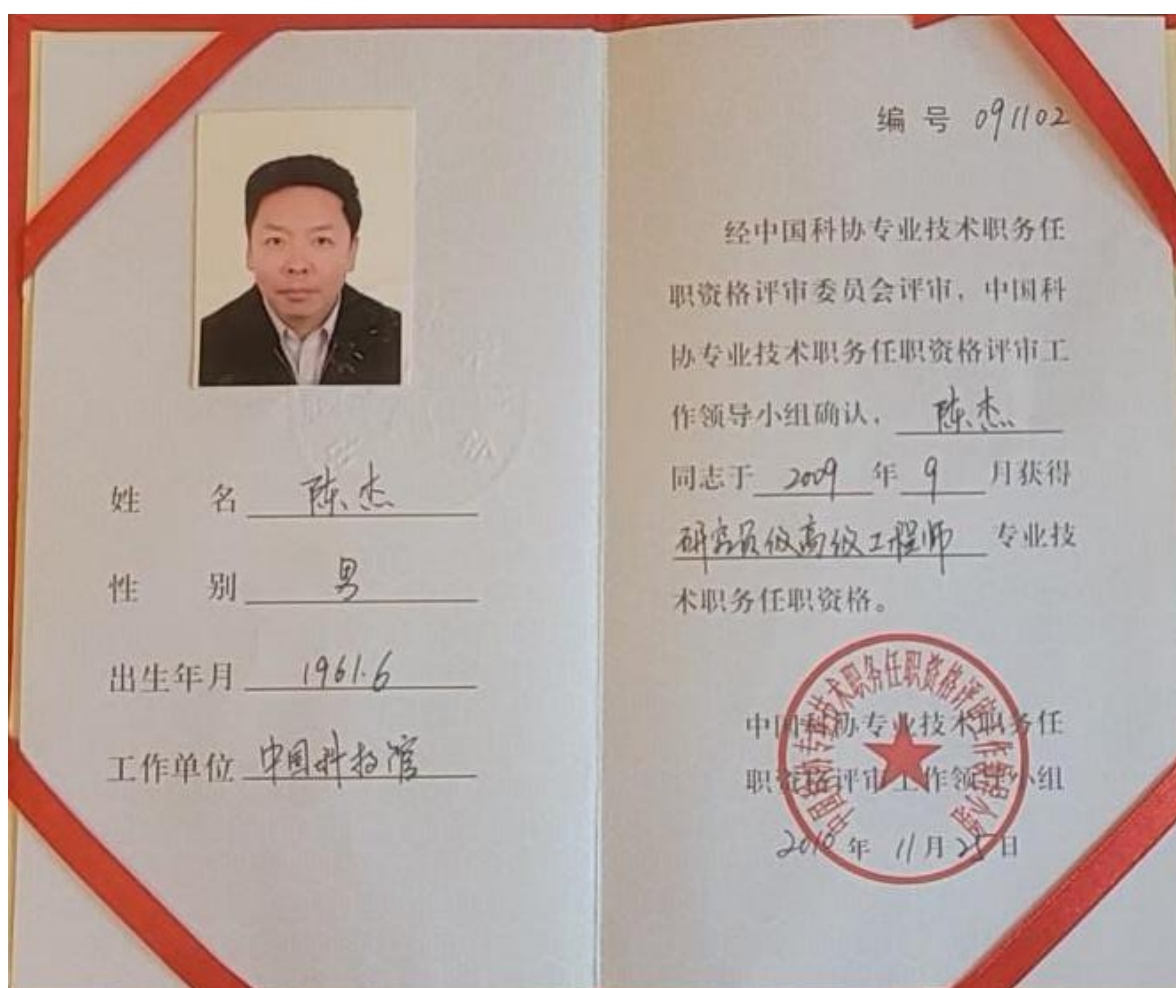 姓名 陈杰
性别 男
出生年月 1961.6
工作单位 中国科技馆
编号 091102
经中国科协专业技术职务任
职资格评审委员会评审，中国科
协专业技术职务任职资格评审工
作领导小组确认，陈杰
同志于 2009 年 9 月获得
研究员级高级工程师 专业技
术职务任职资格。
中国科协专业技术职务任职资格评审工作领导小组
中国科协专业技术职务任
职资格评审工作领导小组
2010 年 11 月 25 日